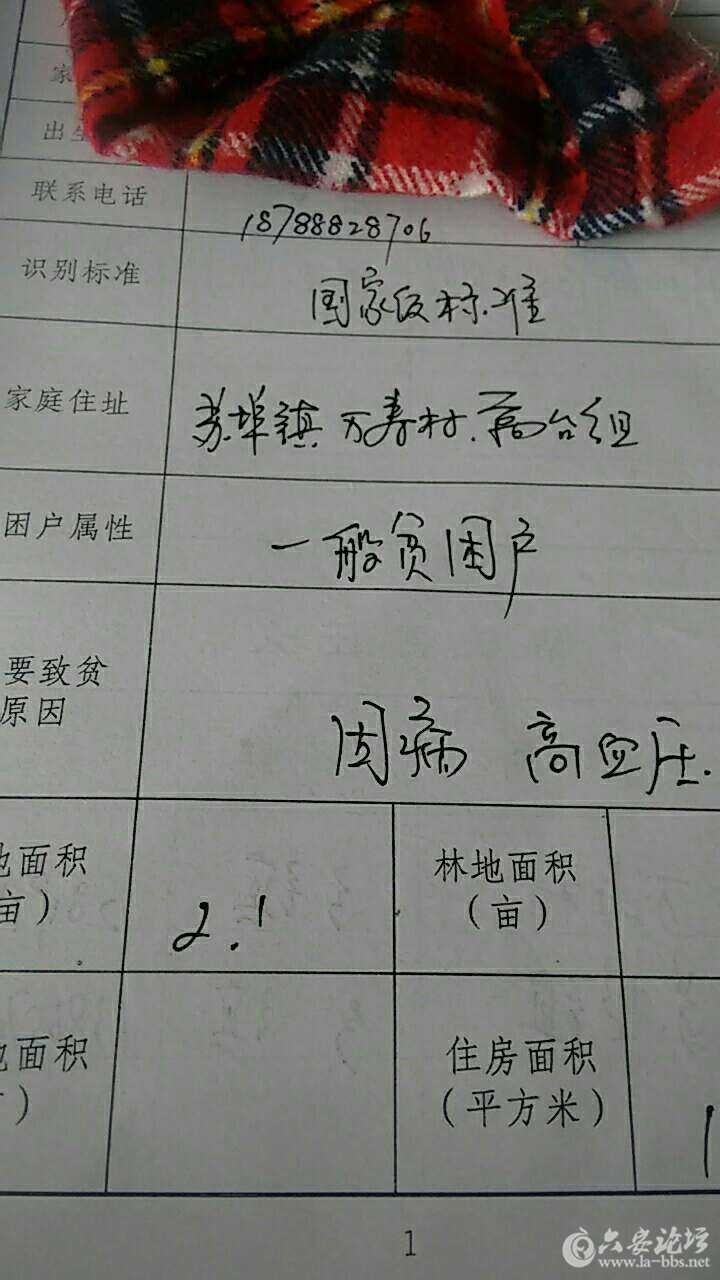 家
出生
联系电话 18788828706
识别标准 国家级标准
家庭住址 苏埠镇万寿村.高台组
困户属性 一般贫困户
要致贫
原因
因病 高血压.
地面积
亩）
2.1
林地面积
（亩）
地面积
）
住房面积
（平方米）
1
1
六安论坛
www.la-bbs.net